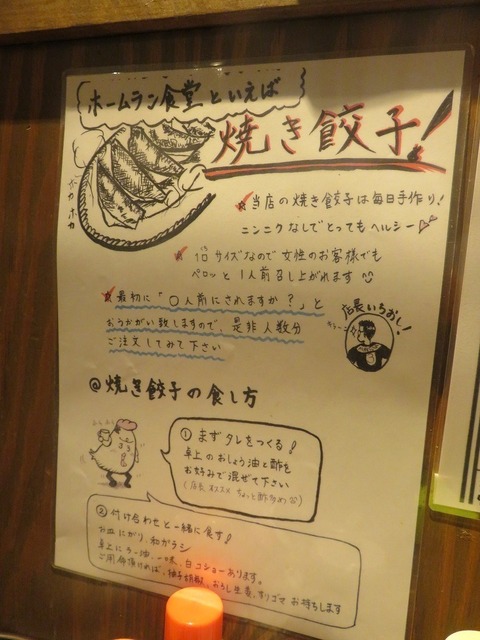 ホームラン食堂といえば
焼き餃子!
ポカポカ
当店の焼き餃子は毎日手作り!
ニンニクなしでとってもヘルシー
サイズなので女性のお客様でも
ペロッと1人前召し上がれます
最初に「〇人前にされますか?」と
おうかがい致しますので、是非人数分
ご注文してみて下さい
店長いちおし!
@焼き餃子の食し方
① まずタレをつくる!
卓上のおしょう油と酢を
お好みで混ぜて下さい
(店長オススメ ちょっと酢多め)
② 付け合わせと一緒に食す!
お皿にがり、和ガラシ
卓上にラー油、一味、白コショーあります。
ご用命頂ければ、柚子胡椒、おろし生姜、すりゴマ お持ちします